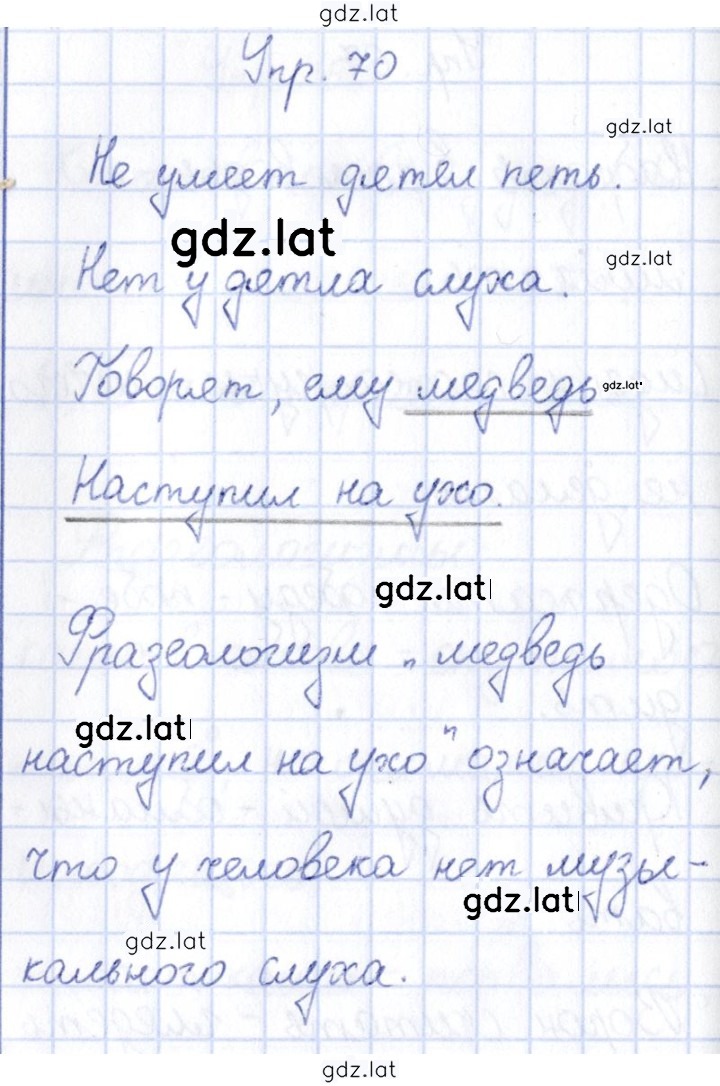 gdz.lat
Упр. 70
gdz.lat
Не умеет дятел петь.
gdz.lat
gdz.lat
Нет у дятла слуха.
Говорят, ему медведь
gdz.lat
Наступил на ухо.
gdz.lat
Фразеологизм „медведь
gdz.lat
наступил на ухо" означает,
что у человека нет музы-
gdz.lat
gdz.lat
кального слуха.
gdz.lat